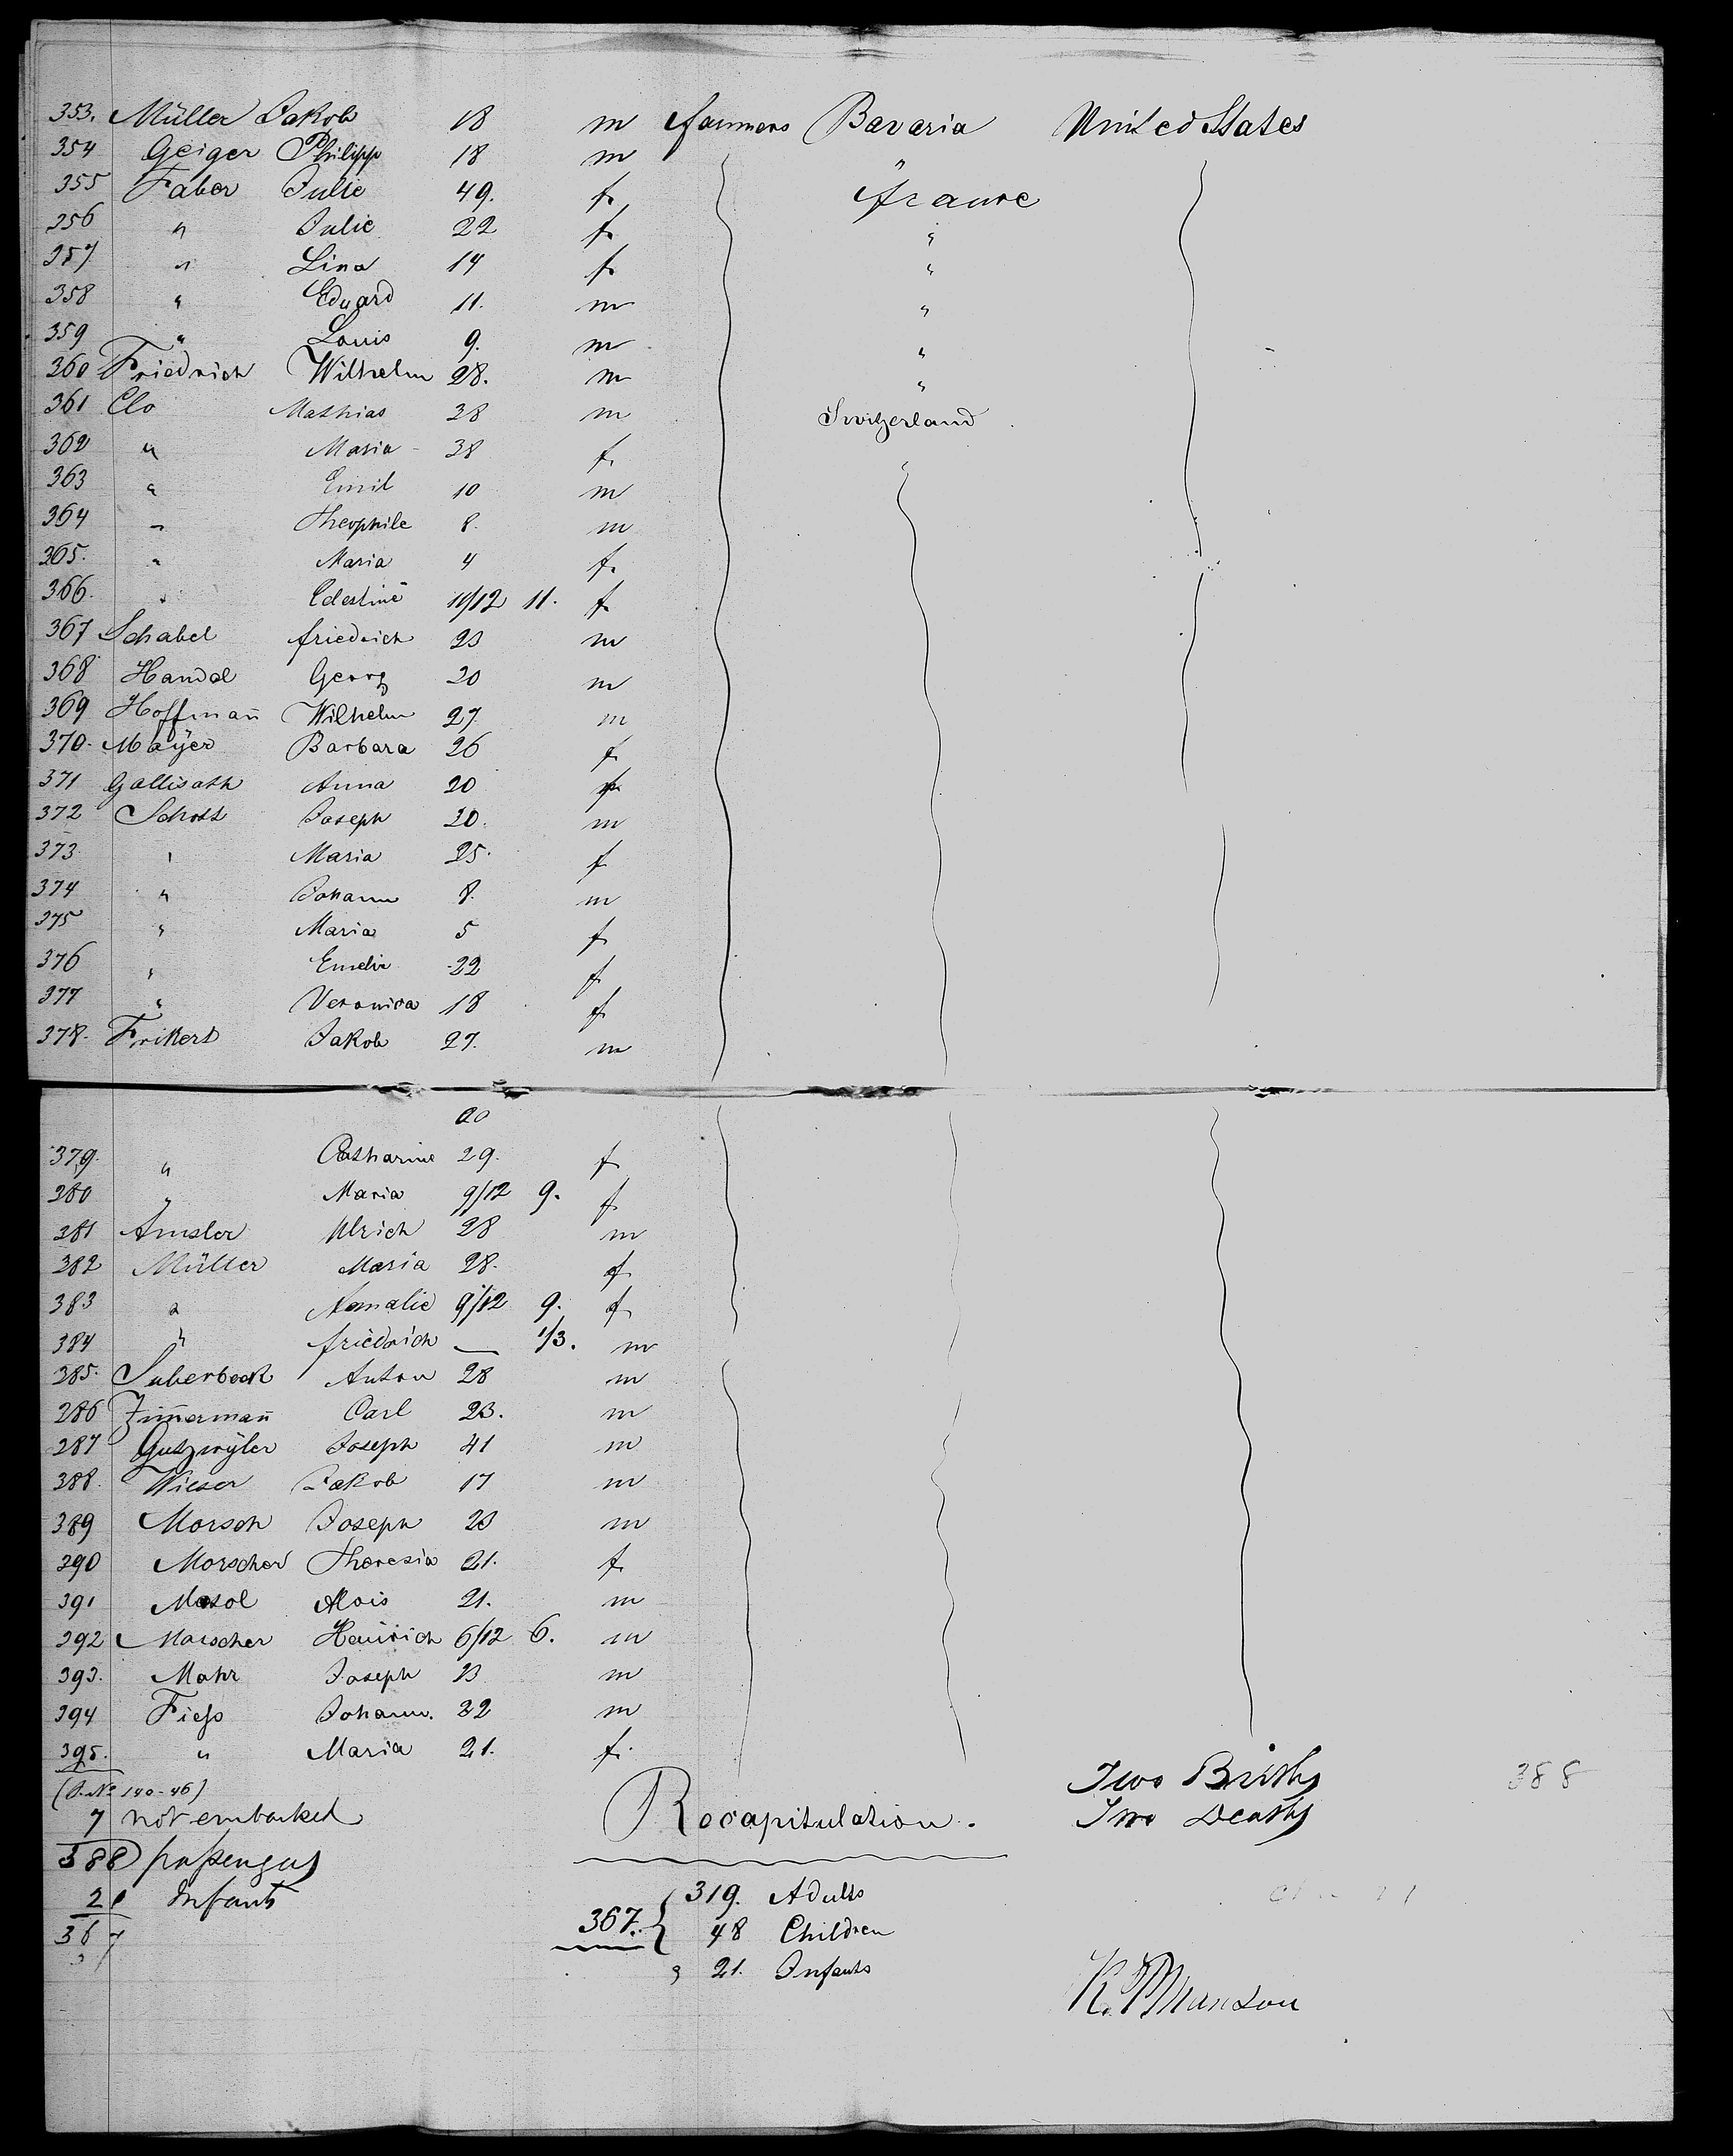 353. Müller Jakob 18 m farmers Bavaria United States
354 Geiger Philipp 18 m "
355 Faber Julie 49. f. France
356 " Julie 22 f. "
357 " Lina 14 f. "
358 " Eduard 11. m "
359 " Louis 9. m "
360 Friedrich Wilhelm 28. m "
361 Clo Mathias 38 m Switzerland
362 " Maria 38 f. "
363 " Emil 10 m
364 " Theophile 8. m
365. " Maria 4 f.
366. " Celestine 11/12 11. f.
367 Schabel friedrich 23 m
368 Handel Georg 20 m
369 Hoffman̄ Wilhelm 27 m
370. Mayer Barbara 26 f
371 Gallisath Anna 20 f
372 Schott Joseph 30. m
373. " Maria 25. f
374 " Johann 8. m
375 " Maria 5 f
376 " Emelie 22 f
377 " Veronica 18 f
378. Frikert Jakob 27. m
20
379. " Catharine 29. f
380 " Maria 9/12 9. f
381 Amsler Ulrich 28 m
382 Müller Maria 28. f
383 " Namalie 9/12 9. f
384 " friedrich — 1/3. m
385. Suberbock Anton 28 m
386 Zim̄erman̄ Carl 23. m
387 Gutzwyler Joseph 41 m
388. Wieser Jakob 17 m
389 Morsch Joseph 23 m
390 Morscher Theresia 21. f.
391 Alois 21. m
392 Morscher Heinrich 6/12 6. m
393. Mahr Joseph 23 m
394 Fiess Johann. 22 m
395. " Maria 21. f.
Two Births 388
(P. No 140-46)
7 not embarked Recapitulation. Two Deaths
388 passengers
21 Infants 319. Adults
367 367. 48 Children
21. Infants